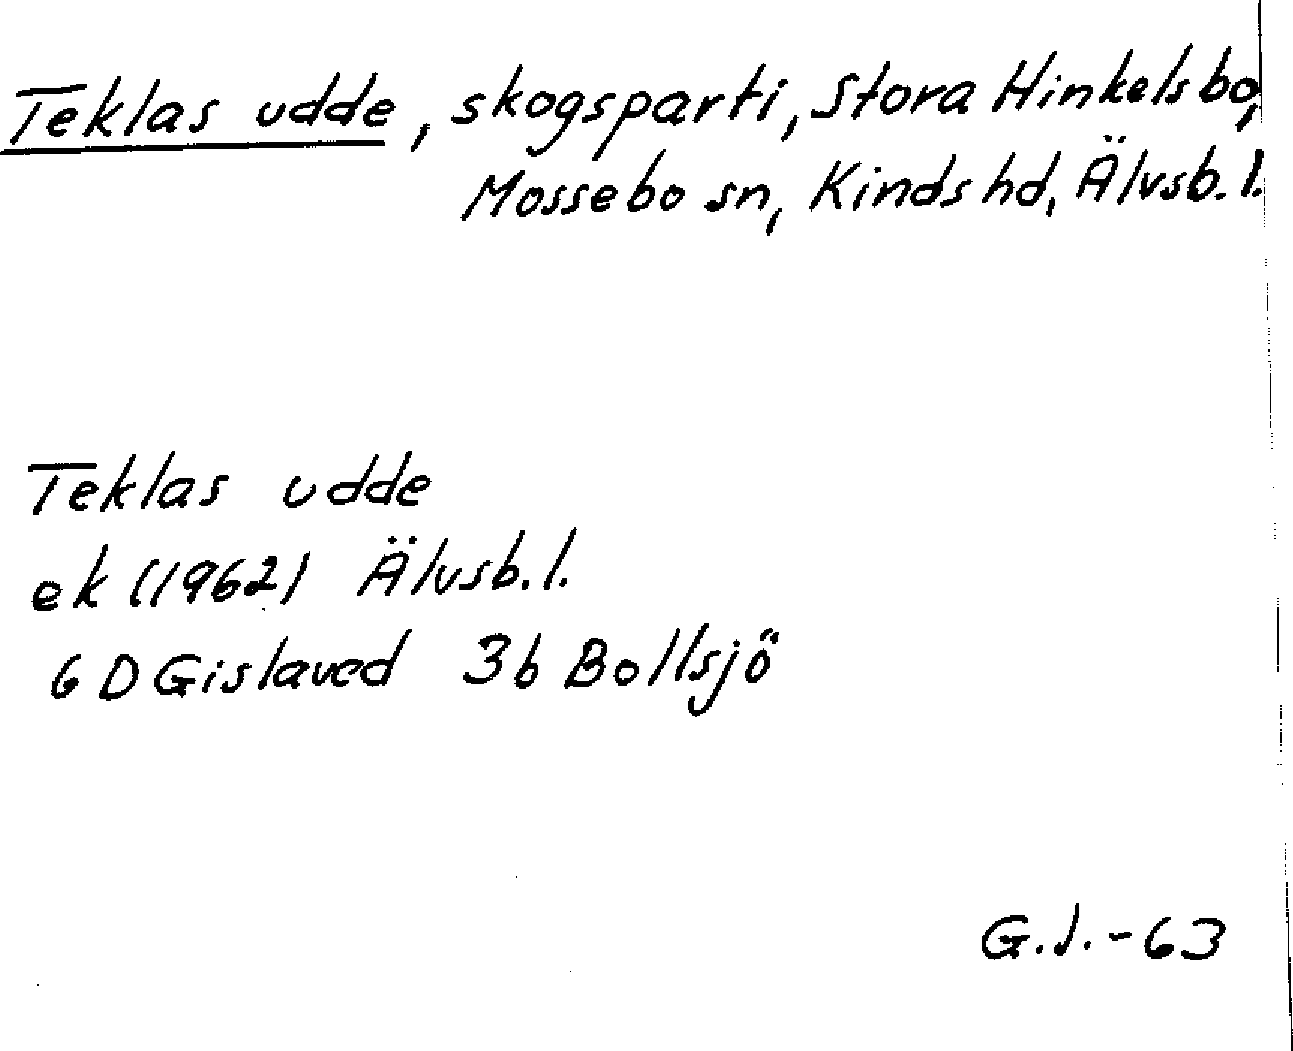 Teklas udde, skogsparti, Stora Hinkelsbo,
Mossebo sn, Kinds hd, Älvsb. l.
Teklas udde
ek (1962) Älvsb. l.
6 D Gislaved 3b Bollsjö
G.J.-63